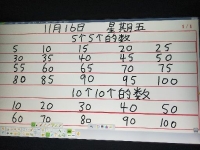 11月16日 星期五
5个5个的数
5 10 15 20 25
30 35 40 45 50
55 60 65 70 75
80 85 90 95 100
10个10个的数
10 20 30 40 50
60 70 80 90 100